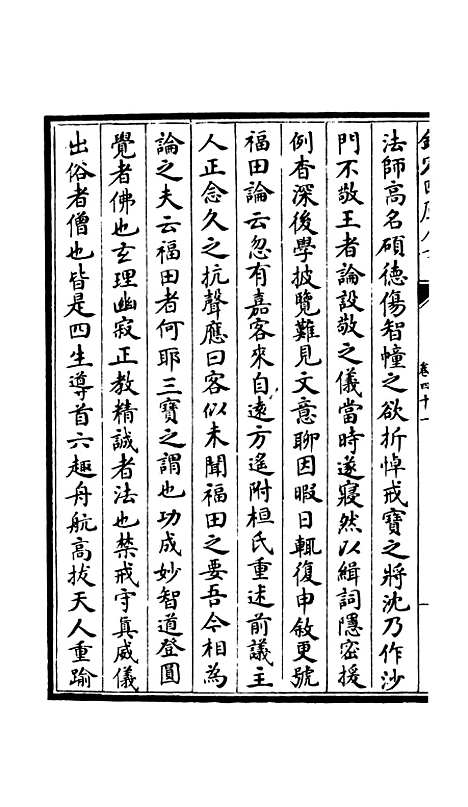 欽定四庫全書
卷四十一
法師高名碩德傷智幢之欲折悼戒寶之將沈乃作沙
門不敬王者論設敬之儀當時遂寢然以緝詞隱密援
例杳深後學披覽難見文意聊因暇日輒復申敘更號
福田論云忽有嘉客來自遠方遙附桓氏重述前議主
人正念久之抗聲應曰客似未聞福田之要吾今相為
論之夫云福田者何耶三寶之謂也功成妙智道登圓
覺者佛也玄理幽寂正教精誠者法也禁戒守真威儀
出俗者僧也皆是四生導首六趣舟航高拔天人重踰